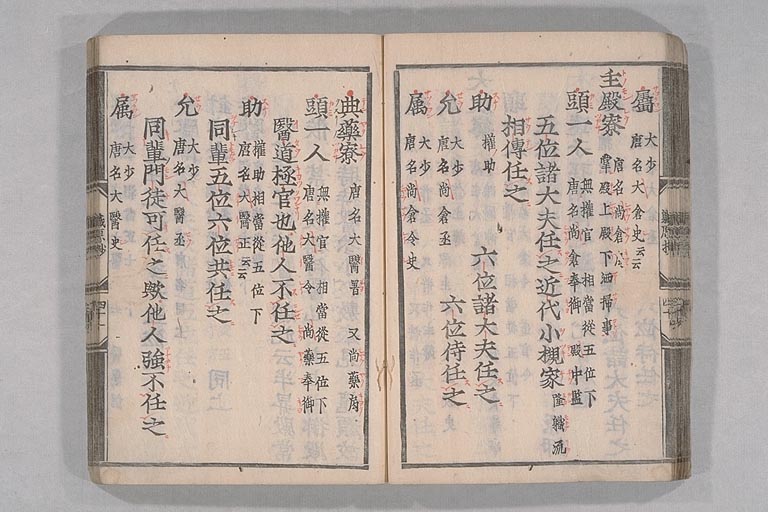 屬 大少 唐名大倉史云云
主殿寮 唐名尚倉局 掌殿上殿下洒掃事
頭一人 無權官 相當從五位下 唐名尚倉奉御 殿中監
五位諸大夫任之近代小槻家 隆職流
相傳任之
助 權助 六位諸大夫任之
允 大少 唐名尚倉丞 六位侍任之
属 大少 唐名尚倉令史
職原抄
典藥寮 唐名大醫署 又尚藥局
頭一人 無權官 相當從五位下 唐名大醫令 尚藥奉御
醫道極官也他人不任之
助 權助相當從五位下 唐名大醫正云云
同輩五位六位共任之
允 大少 唐名大醫丞
同輩門徒可任之歟他人強不任之
属 大少 唐名大醫史
職原抄